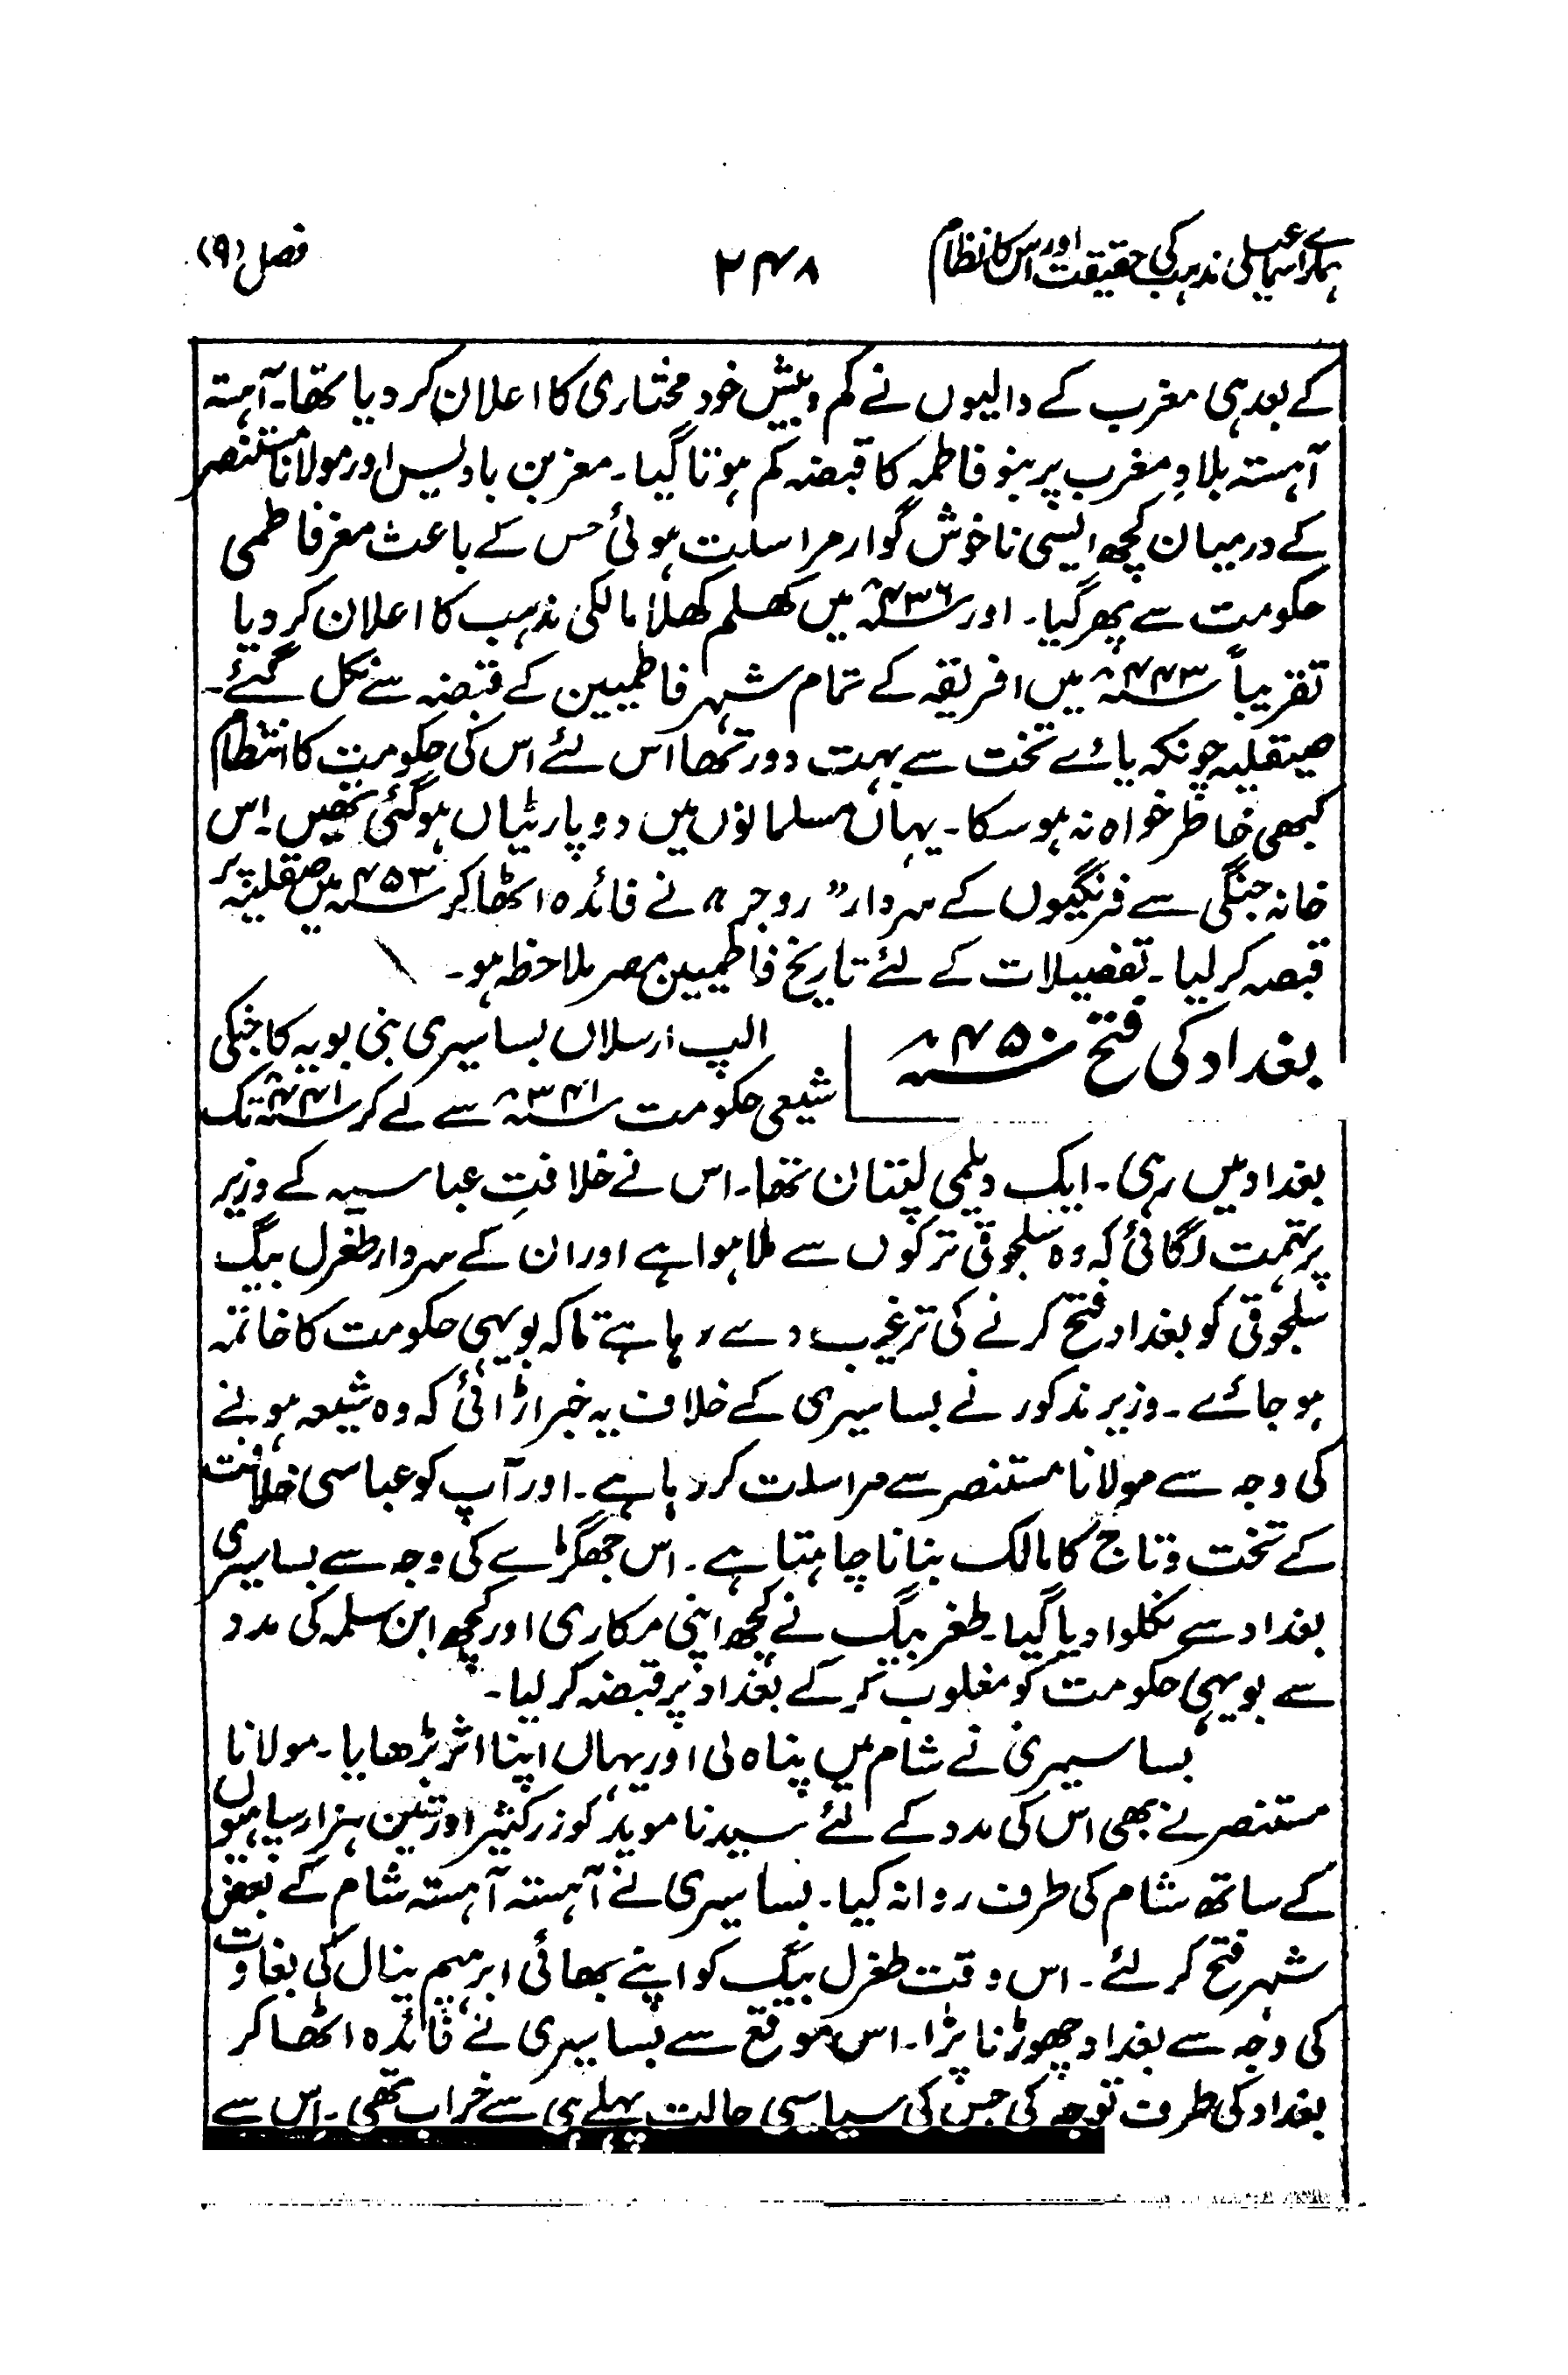 ہمارے اسماعیلی مذہب کی حقیقت اور اس کا نظام ۲۴۸ فصل (۹)
کے بعد ہی مغرب کے والیوں نے کم و بیش خود مختاری کا اعلان کر دیا تھا۔ آہستہ
آہستہ بلادِ مغرب پر بنو فاطمہ کا قبضہ کم ہوتا گیا۔ معز بن بادیس اور مولانا مستنصر
کے درمیان کچھ ایسی ناخوش گوار مراسلت ہوئی جس کے باعث معز فاطمی
حکومت سے پھر گیا۔ اور ۴۳۶ھ میں کھلم کھلا مالکی مذہب کا اعلان کر دیا
تقریباً ۴۴۳ھ میں افریقہ کے تمام شہر فاطمیین کے قبضہ سے نکل گئے۔
صیقلیہ چونکہ پائے تخت سے بہت دور تھا اس لئے اس کی حکومت کا انتظام
کبھی خاطر خواہ نہ ہو سکا۔ یہاں مسلمانوں میں دو پارٹیاں ہو گئی تھیں۔ اس
خانہ جنگی سے فرنگیوں کے سردار "روجر" نے فائدہ اٹھا کر ۴۵۳ھ میں صقلیہ پر
قبضہ کر لیا۔ تفصیلات کے لئے تاریخ فاطمیین مصر ملاحظہ ہو۔
بغداد کی فتح ۴۵۰ھ
الپ ارسلاں بساسیری بنی بویہ کا جنکی
شیعی حکومت ۳۴۱ھ سے لے کر ۴۴۱ھ تک
بغداد میں رہی۔ ایک دیلمی کپتان تھا۔ اس نے خلافتِ عباسیہ کے وزیر
پر تہمت لگائی کہ وہ سلجوقی ترکوں سے ملا ہوا ہے اور ان کے سردار طغرل بیگ
سلجوقی کو بغداد فتح کرنے کی ترغیب دے رہا ہے تاکہ بویہی حکومت کا خاتمہ
ہو جائے۔ وزیر مذکور نے بساسیری کے خلاف یہ خبر اڑائی کہ وہ شیعہ ہونے
کی وجہ سے مولانا مستنصر سے مراسلت کر رہا ہے۔ اور آپ کو عباسی خلافت
کے تخت و تاج کا مالک بنانا چاہتا ہے۔ اس جھگڑے کی وجہ سے بساسیری
بغداد سے نکلوا دیا گیا۔ طغر بیگ نے کچھ اپنی مرکاری اور کچھ ابن سلمہ کی مدد
سے بویہی حکومت کو مغلوب کر کے بغداد پر قبضہ کر لیا۔
بساسیری نے شام میں پناہ لی اور یہاں اپنا اثر بڑھایا۔ مولانا
مستنصر نے بھی اس کی مدد کے لئے سیدنا موید کو زرکثیر اور تین ہزار سپاہیوں
کے ساتھ شام کی طرف روانہ کیا۔ بساسیری نے آہستہ آہستہ شام کے بعض
شہر فتح کر لئے۔ اس وقت طغرل بیگ کو اپنے بھائی ابرہیم ینال کی بغاوت
کی وجہ سے بغداد چھوڑنا پڑا۔ اس موقع سے بساسیری نے فائدہ اٹھا کر
بغداد کی طرف توجہ کی جس کی سیاسی حالت پہلے ہی سے خراب تھی۔ اس سے